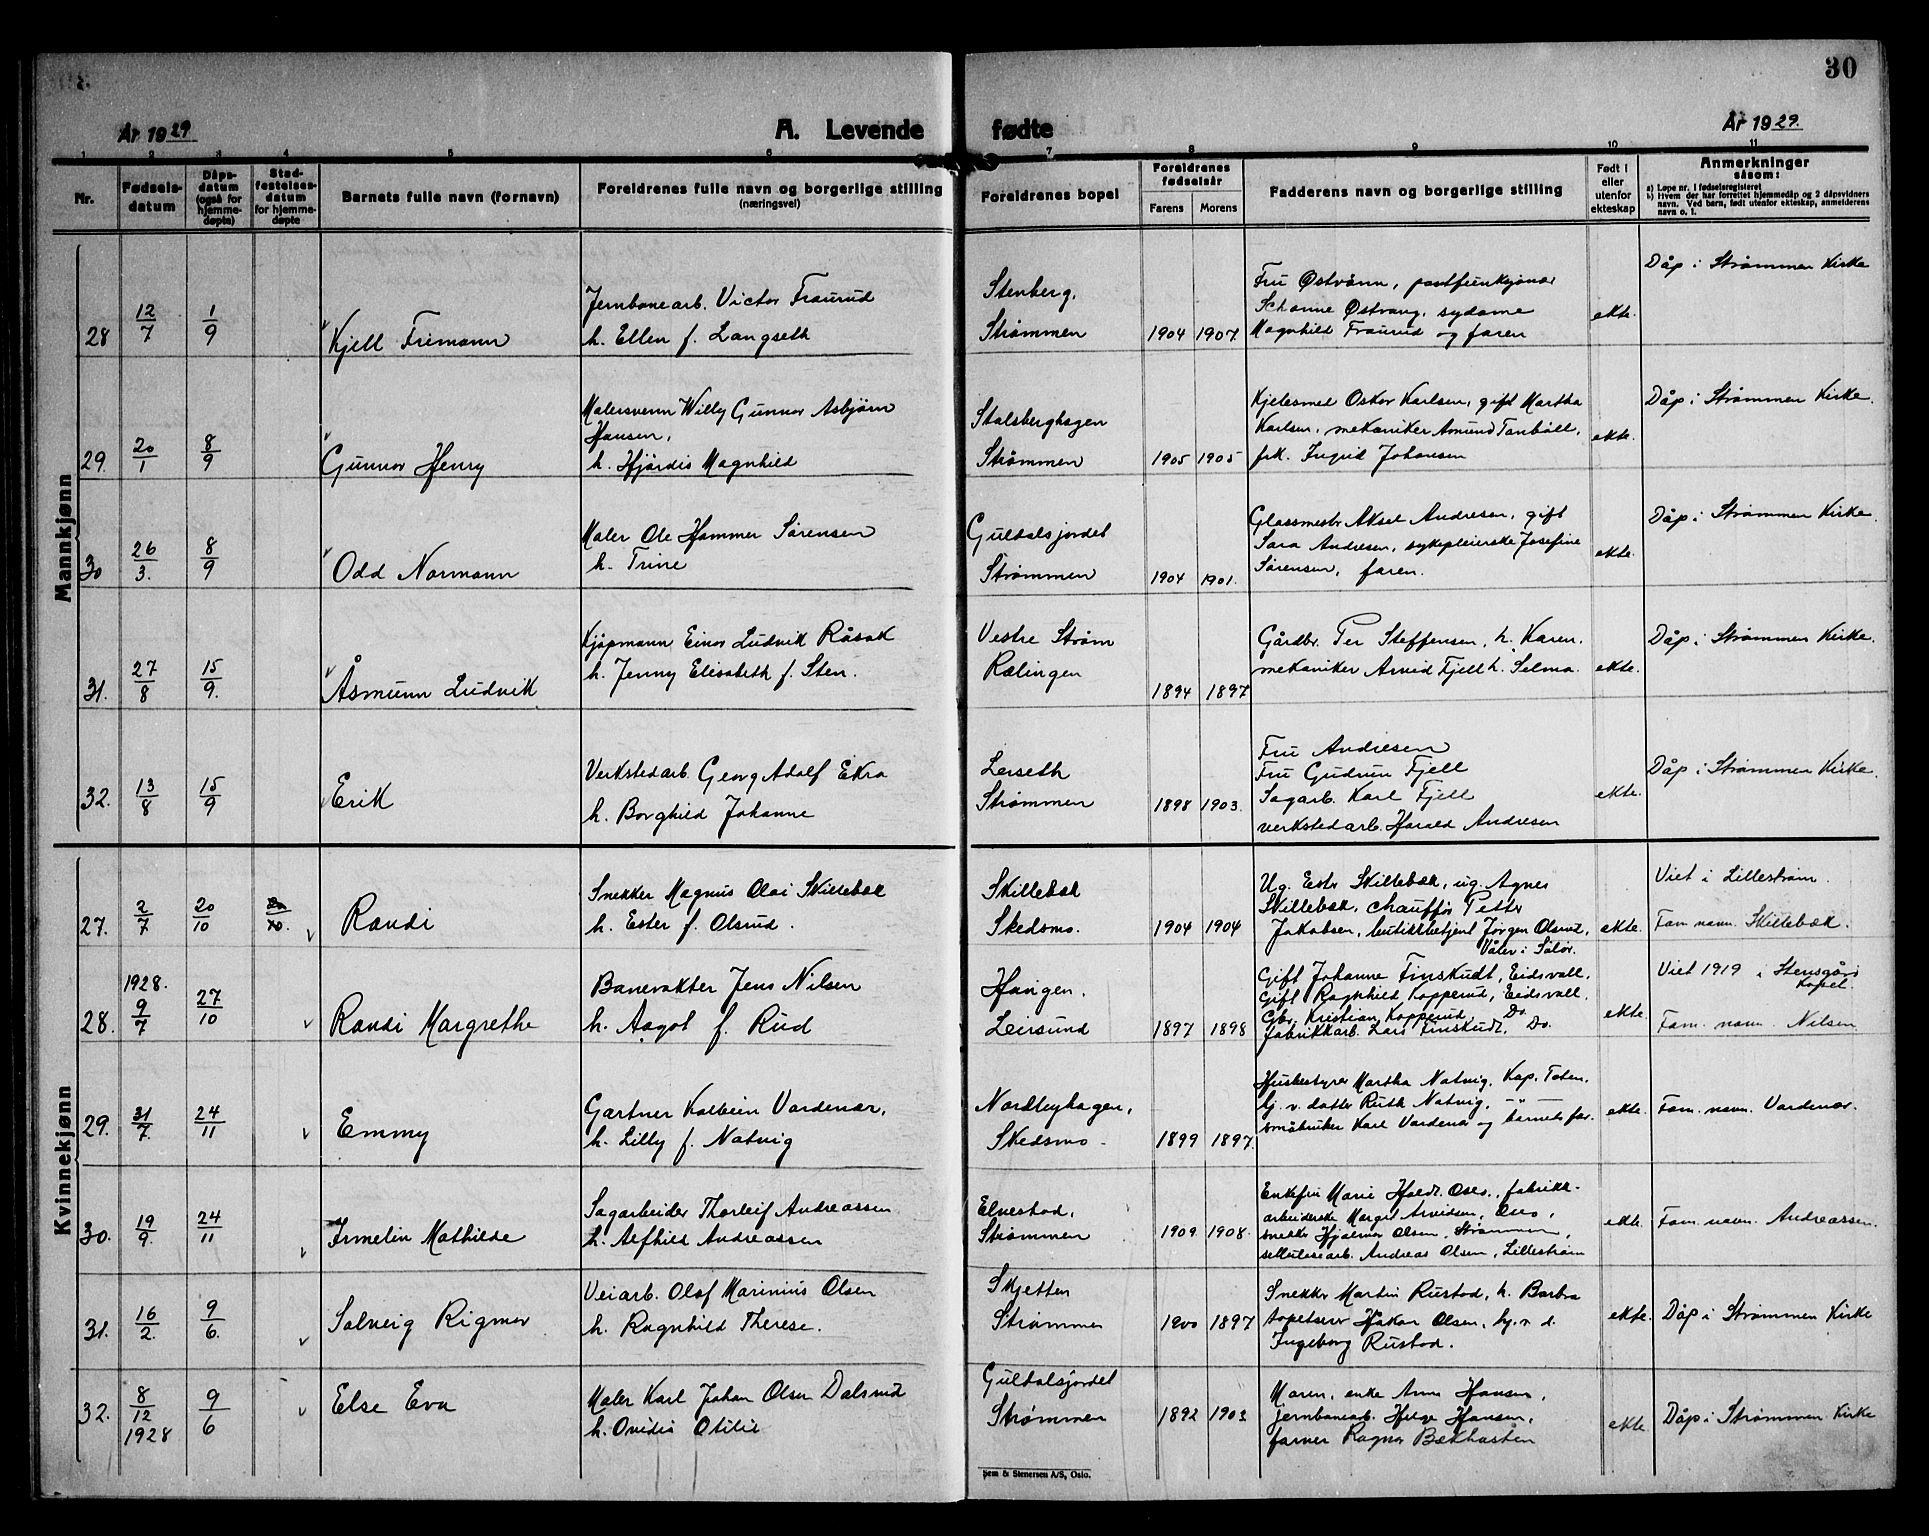 30
År 1929
A. Levende fødte
År 1929.
1 2 3 4 5 6 7 8 9 10 11
Nr.
Fødsels-
datum
Dåps-
datum
(også for
hjemme-
døpte)
Stad-
festelses-
datum
for hjemme-
døpte
Barnets fulle navn (fornavn)
Foreldrenes fulle navn og borgerlige stilling
(næringsvei)
Foreldrenes bopel
Foreldrenes
fødselsår
Farens
Morens
Fadderens navn og borgerlige stilling
Født i
eller
utenfor
ekteskap
Anmerkninger
såsom:
a) Løpe nr. i fødselsregisteret
b) Hvem der har forrettet hjemmedåp og 2 dåpsvidners
navn. Ved barn, født utenfor ekteskap, anmelderens
navn o. l.
Mannkjønn
28 12/7 1/9 Kjell Frimann
Jernbanearb. Victor Fraurud
h. Ellen f. Langseth
Stenberg,
Strømmen
1904 1907
Fru Østvånn, postfunksjonær
Schanne Østvang, sydame
Magnhild Fraurud og faren
ekte.
Dåp i Strømmen Kirke
29. 20/1 8/9 Gunnar Henry
Malersvenn Willy Gunnar Asbjørn
Hansen,
h. Hjørdis Magnhild
Stalsberghagen
Strømmen
1905 1905
Kjelesmed Oskar Karlsen, gift Martha
Karlsen, mekaniker Asmund Tanböll,
frk. Ingrid Johansen
ekte.
Dåp i Strømmen Kirke.
30 26/3. 8/9 Odd Normann
Maler Ole Hammer Sørensen
h. Trine
Guldalsjordet
Strømmen
1904 1901.
Glassmestr Aksel Andresen, gift
Sara Andresen, sykepleierske Josefine
Sørensen, faren.
ekte.
Dåp i Strømmen Kirke.
31. 27/8 15/9. Åsmunn Ludvik
Kjøpmann Einar Ludvik Råsok
h. Jenny Elisabeth f. Sten.
Vestre Strøm
Rælingen
1894 1897
Gårdbr. Per Steffensen, h. Karen.
mekaniker Arvid Fjell h. Selma.
ekte.
Dåp i Strømmen Kirke.
32. 13/8 15/9 Erik
Verkstedarb. Georg Adolf Ekra
h. Borghild Johanne
Lerseth
Strømmen
1898 1903.
Fru Andresen
Fru Gudrun Fjell
Sagarb. Karl Fjell
verkstedarb. Harald Andresen
ekte.
Dåp i Strømmen Kirke.
Kvinnekjønn
27. 2/7 20/10 20/10. Randi
Snekker Magnus Olai Skillebæk
h. Ester f. Olsrud.
Skillebæk
Skedsmo.
1904 1904
Ug. Estr Skillebæk, ug. Agnes
Skillebæk, chauffør Petter
Jakobsen, butikkbetjent Jørgen Olsrud,
Våler i Solør.
ekte.
Viet i Lillestrøm.
Fam. navn. Skillebæk.
28. 1928. 9/7 27/10 Randi Margrethe
Banevakter Jens Nilsen
h. Aagot f. Rud
Haugen.
Leirsund
1897 1898
Gift Johanne Finskudt, Eidsvall.
Gift Ragnhild Kopperud, Eidsvall.
Gbr. Kristian Kopperud, Do.
fabrikkarb. Lars Finskudt, Do.
ekte.
Viet 1919 i Stensgård
kapel.
Fam. navn. Nilsen
29. 31/7. 24/11 Emmy
Gartner Kolbein Vardenær,
h. Lilly f. Natvig
Nordbyhagen,
Skedsmo.
1899 1897.
Husbestyrer Martha Natvig, Kap, Toten,
hj. v. datter Ruth Natvig, -"-
småbruker Karl Vardenær og barnets far.
ekte.
Fam. navn. Vardenær.
30. 19/9. 24/11 Irmelin Mathilde
Sagarbeider Thorleif Andreassen
h. Alfhild Andreassen
Elvestad,
Strømmen
1909 1908.
Enkefru Marie Holdt, Oslo., fabrikk-
arbeiderske Margit Arvidsen, Oslo,
snekker Hjalmar Olsen, Strømmen,
sellulosearb. Andreas Olsen, Lillestrøm
ekte.
Fam. navn. Andreassen.
31. 16/2. 9/6. Solveig Rigmor
Veiarb. Olaf Marinius Olsen
h. Ragnhild Therese.
Skjetten
Strømmen
1900 1897
Snekker Martin Rustad, h. Barbra
tapetserer Håkon Olsen, hj. v. d.
Ingeborg Rustad.
ekte.
Dåp i Strømmen Kirke
32. 8/12 1928 9/6 Else Eva
Maler Karl Johan Olsen Dalsrud
h. Ovidia Otilie
Guldalsjordet
Strømmen
1892 1903
Moren, enke Anna Hansen,
jernbanearb. Helge Hansen,
farver Ragnar Bækhasten
ekte.
Dåp i Strømmen Kirke
Sem & Stenersen A/S, Oslo.